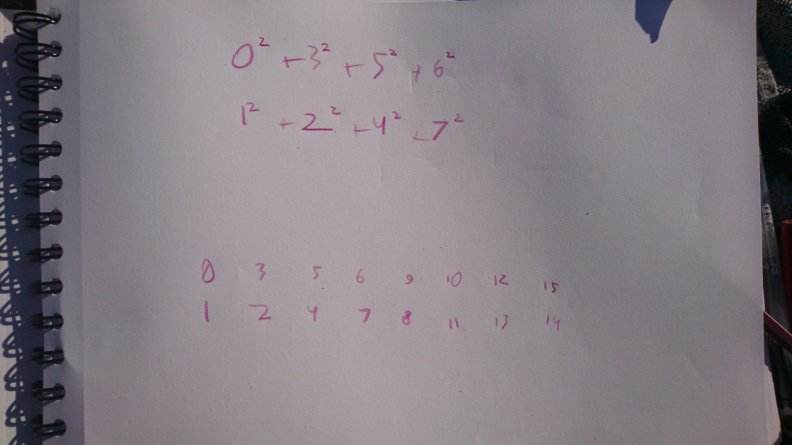 0² + 3² + 5² + 6²
1² + 2² + 4² + 7²
0 3 5 6 9 10 12 15
1 2 4 7 8 11 13 14